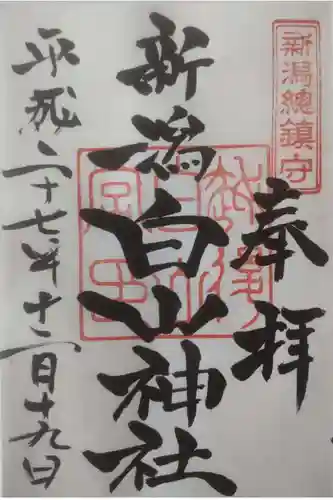 新潟總鎮守
奉拝
新潟白山神社
平成二十七年十二月十九日